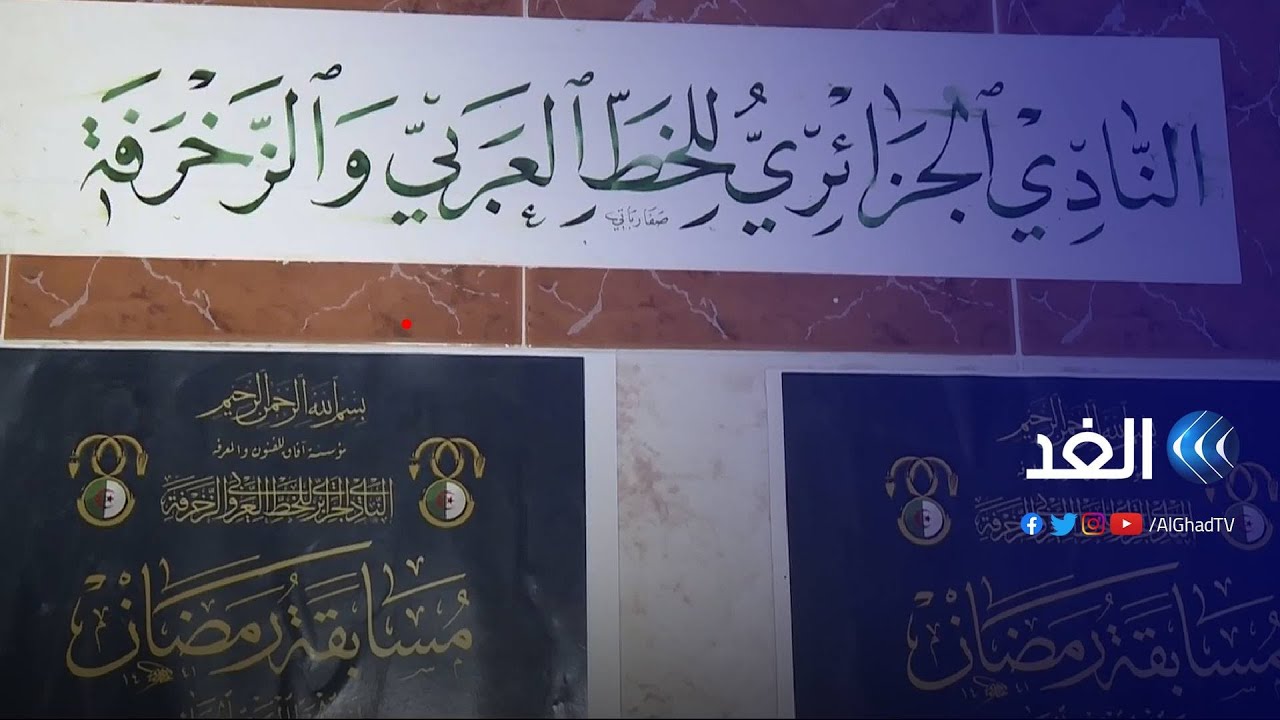 النَّادِي ٱلْجَزَائِرِيُّ لِلْخَطِّ ٱلْعَرَبِيِّ وَٱلزَّخْرَفَة
صفار باتي
بسم الله الرحمن الرحيم
مؤسسة آفاق للفنون والمعرفة
النادي الجزائري للخط العربي والزخرفة
مُسَابَقَةُ رَمَضَانْ
١٤٤١
بسم الله الرحمن الرحيم
النادي الجزائري للخط العربي والزخرفة
مُسَابَقَةُ رَمَضَانْ
١٤٤١
الغد
/AlGhadTV